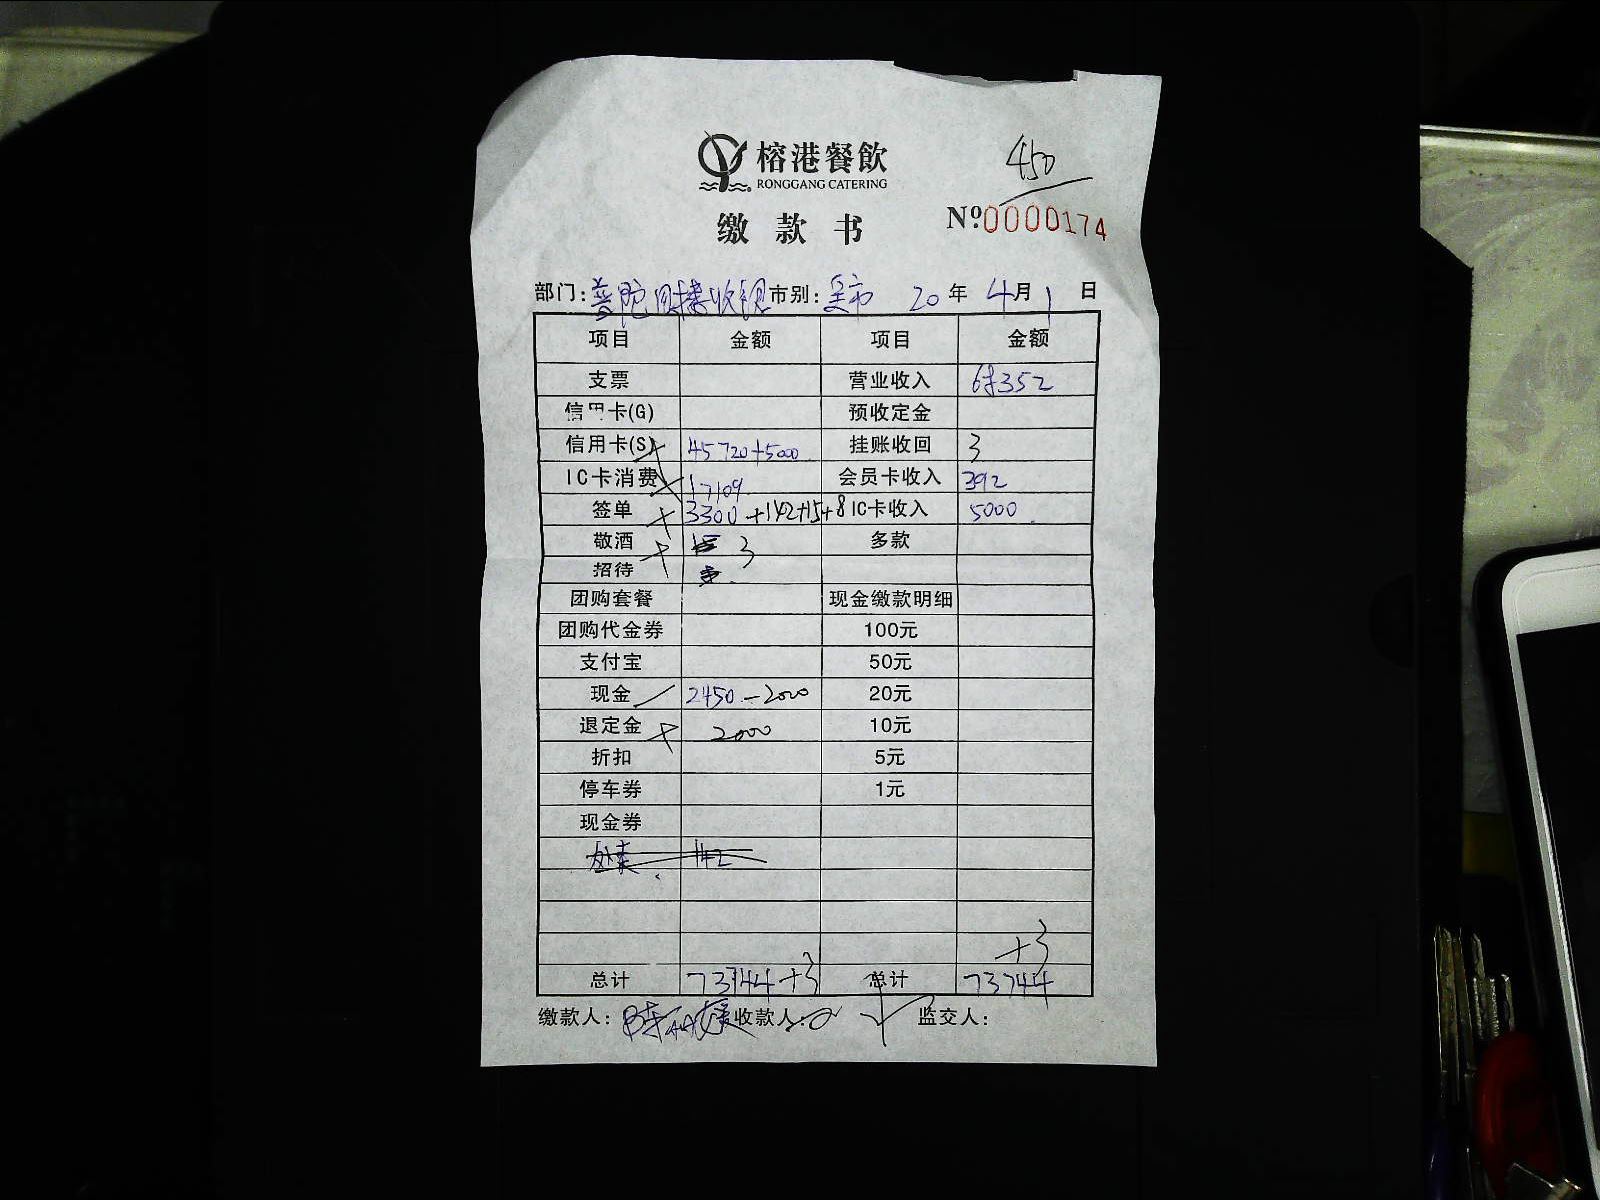 450
榕港餐飲
RONGGANG CATERING
缴款书
Nº:0000174
部门:普陀 收银 市别:全市 20年4月1日
项目 金额 项目 金额
支票 营业收入 68352
信用卡(G) 预收定金
信用卡(S) 45720+5000 挂账收回 3
IC卡消费 17109 会员卡收入 392
签单 3300+142+15+8 IC卡收入 5000
敬酒 3 多款
招待
团购套餐 现金缴款明细
团购代金券 100元
支付宝 50元
现金 2450-2000 20元
退定金 2000 10元
折扣 5元
停车券 1元
现金券
142
+3
总计 73744+3 总计 73744
缴款人: 收款人: 监交人: